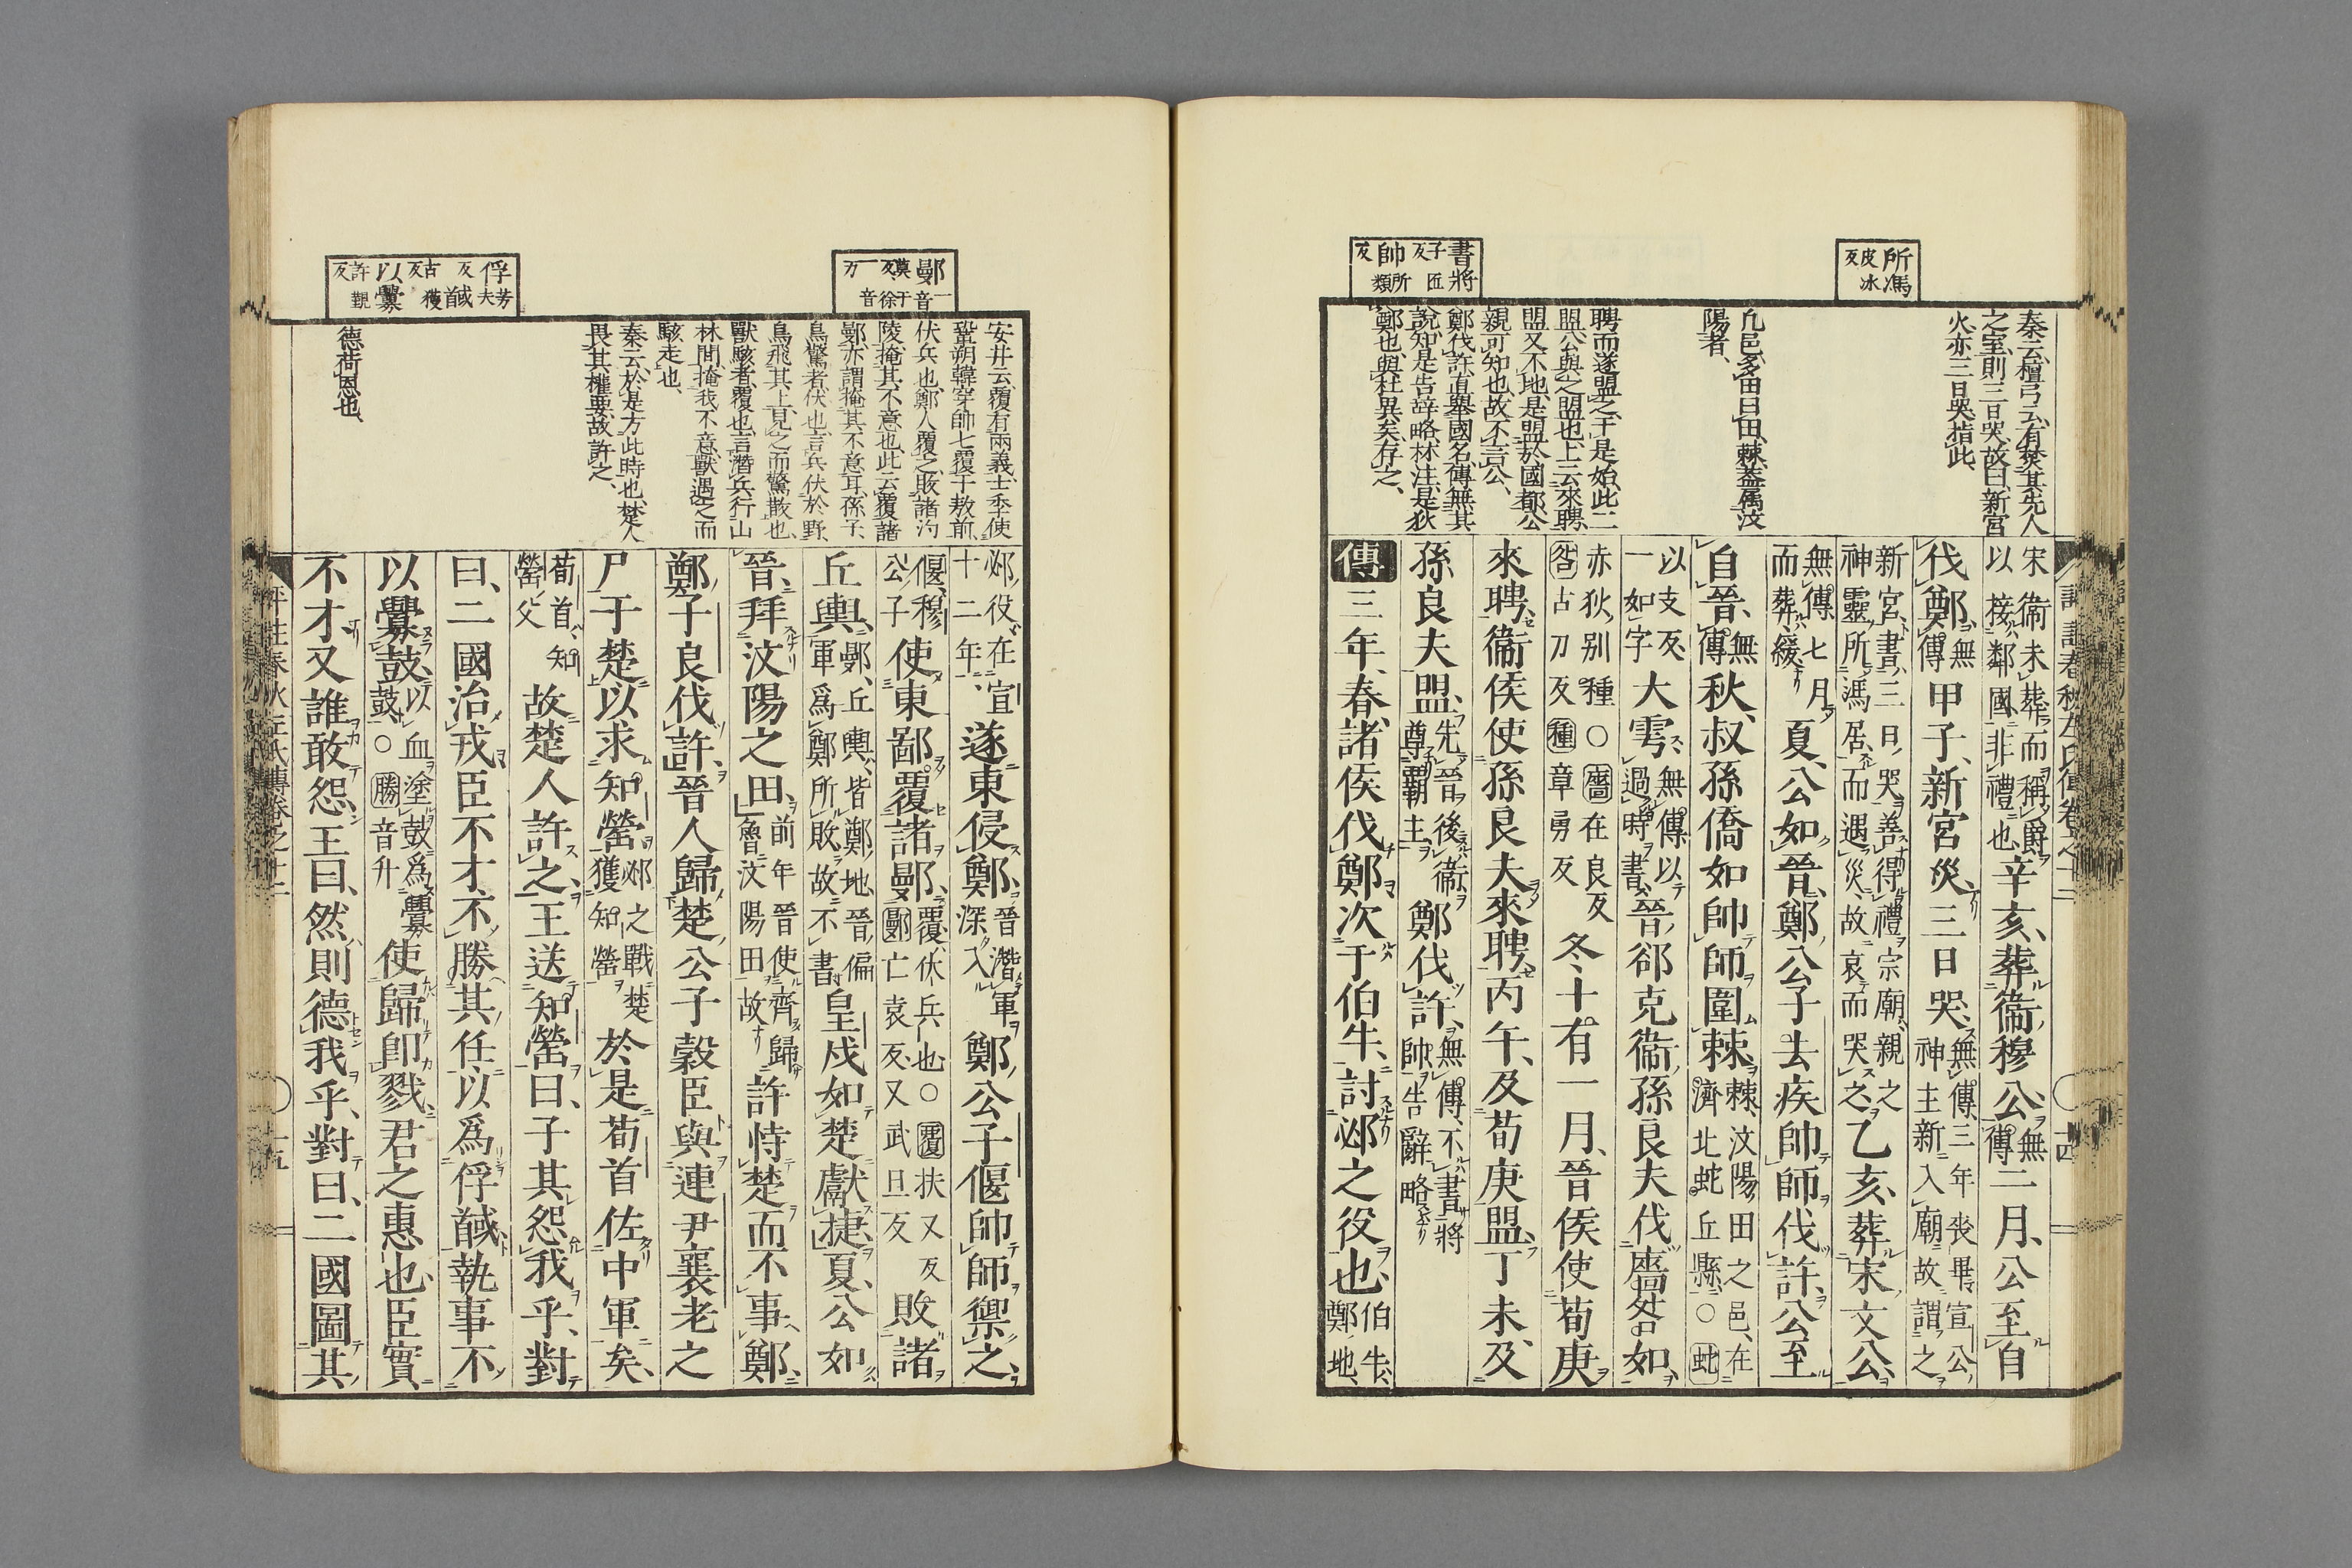 所馮 皮冰反
書將 子匠反 帥 所類反
秦云、檀弓云、有焚其先人
之室、則三日哭、故曰、新宮
火、亦三日哭、指此、
凡邑、多田曰田、棘蓋属汶
陽者、
聘而遂盟之、于是始、此二
盟、公與之盟也、上云來聘、
盟又不地、是盟於國都、公
親可知也、故不言公、
鄭伐許、直舉國名、傳無其
說、知是告辞略、林注、是狄
鄭也、與杜異矣、存之、
宋衞未葬而稱爵以接鄰國非禮也辛亥、葬衞穆公、無傳二月、公至自
伐鄭、無傳甲子、新宮災、三日哭、無傳、三年喪畢、宣公神主新入廟、故謂之
新宮、書三日哭、善得禮、宗廟、親之神靈所馮居、而遇災、故哀而哭之、乙亥、葬宋文公、
無傳、七月而葬、緩夏、公如晉、鄭公子去疾帥師伐許、公至
自晉、無傳秋、叔孫僑如帥師圍棘、棘、汶陽田之邑、在濟北蛇丘縣、○蛇
以支反、一如字大雩、無傳、以過時書、晉郤克衞孫良夫伐廧咎如、
赤狄別種○廧在良反咎古刀反種章勇反冬、十有一月、晉侯使荀庚
來聘、衞侯使孫良夫來聘、丙午、及荀庚盟、丁未、及
孫良夫盟、先晉後衞尊霸主鄭伐許、無傳、不書將帥、告辭略
傳三年、春、諸侯伐鄭、次于伯牛、討邲之役也、伯牛、鄭地、
鄤 音
俘 芳夫反 馘 古獲反 以釁 許覲反
安井云、覆有兩義、士季使
鞏朔韓穿帥七覆于敖前、
伏兵也、鄭人覆之、敗諸汋
陵、掩其不意也、此云、覆諸
鄤、亦謂掩其不意耳、孫子、
鳥驚者、伏也、言兵伏於野、
鳥飛其上、見之而驚散也、
獸駭者、覆也、言潛兵行山
林間、掩我不意、獸遇之而
駭走也、
秦云、於是方此時也、楚人
畏其權要、故許之、
德荷恩也、
邲役、在宣十二年、遂東侵鄭、晉潛軍深入鄭公子偃帥師禦之、
偃、穆公子使東鄙覆諸鄤、覆、伏兵也○覆扶又反鄤亡袁反又武旦反敗諸
丘輿、鄤、丘輿、皆鄭地、晉偏軍爲鄭所敗、故不書皇戌如楚獻捷、夏、公如
晉、拜汶陽之田、前年晉使齊歸魯汶陽田故許恃楚而不事鄭、
鄭子良伐許、晉人歸楚公子穀臣與連尹襄老之
尸于楚、以求知罃、邲之戰楚獲知罃於是荀首佐中軍矣、
荀首、知罃父故楚人許之、王送知罃曰、子其怨我乎、對
曰、二國治戎、臣不才、不勝其任、以爲俘馘、執事不
以釁鼓、以血塗鼓爲釁鼓○勝音升使歸卽戮、君之惠也、臣實
不才、又誰敢怨、王曰、然則德我乎、對曰、二國圖其